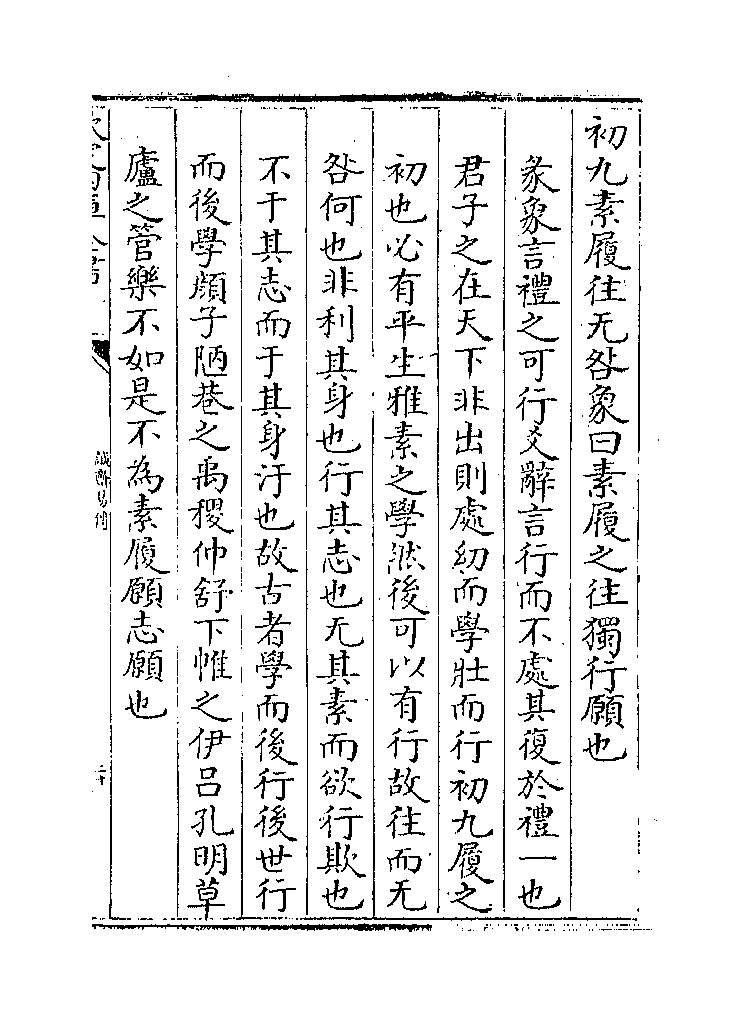 初九素履往无咎象曰素履之往獨行願也
彖象言禮之可行爻辭言行而不處其復於禮一也
君子之在天下非出則處幼而學壯而行初九履之
初也必有平生雅素之學然後可以有行故往而无
咎何也非利其身也行其志也无其素而欲行欺也
不于其志而于其身汙也故古者學而後行後世行
而後學顔子陋巷之禹稷仲舒下帷之伊吕孔明草
廬之管樂不如是不為素履願志願也
誠齋易傳